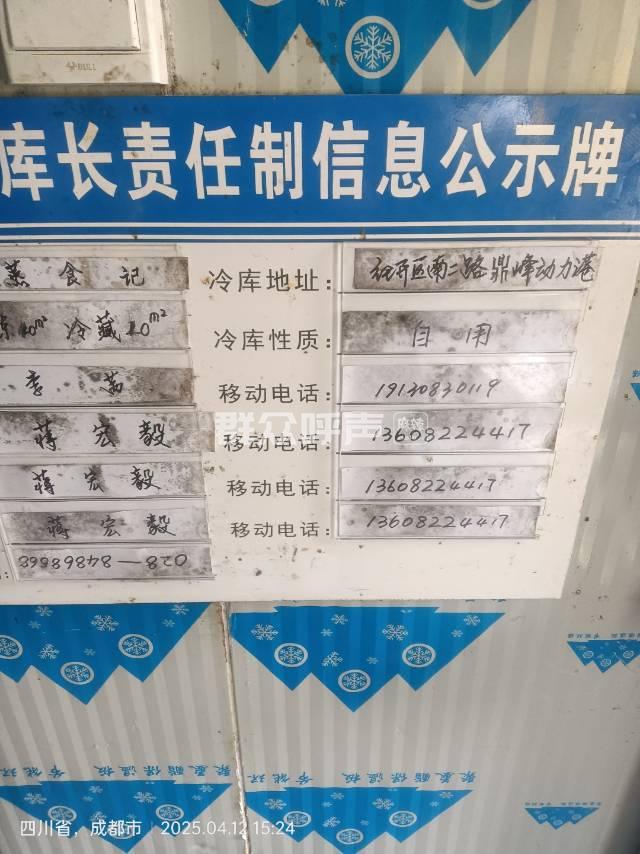 BULL
库长责任制信息公示牌
蒸食记 冷库地址: 经开区南二路鼎峰动力港
冻20m² 冷藏20m² 冷库性质: 自用
李茜 移动电话: 19130830119
蒋宏毅 移动电话: 13608224417
蒋宏毅 移动电话: 13608224417
蒋宏毅 移动电话: 13608224417
028—84868568
群众呼声
聚氨酯保温板 节能环
四川省，成都市 2025.04.12 15:24